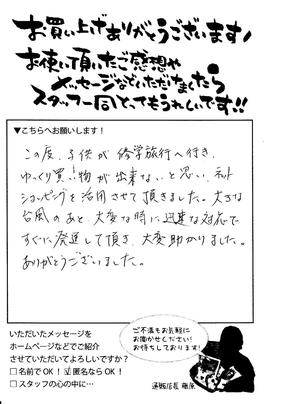 お買い上げありがとうございます!
お使い頂いたご感想や
メッセージなどいただけましたら
スタッフ一同とってもうれしいです!!
▼こちらへお願いします!
この度、子供が修学旅行へ行き、
ゆっくり買い物が出来ないと思い、ネット
ショッピングを活用させて頂きました。大きな
台風のあと、大変な時に迅速な対応で
すぐに発送して頂き、大変助かりました。
ありがとうございました。
いただいたメッセージを
ホームページなどでご紹介
させていただいてよろしいですか?
□名前でOK! ☑匿名ならOK!
□スタッフの心の中に…
ご不満もお気軽に
お聞かせください!
お待ちしております!
店長